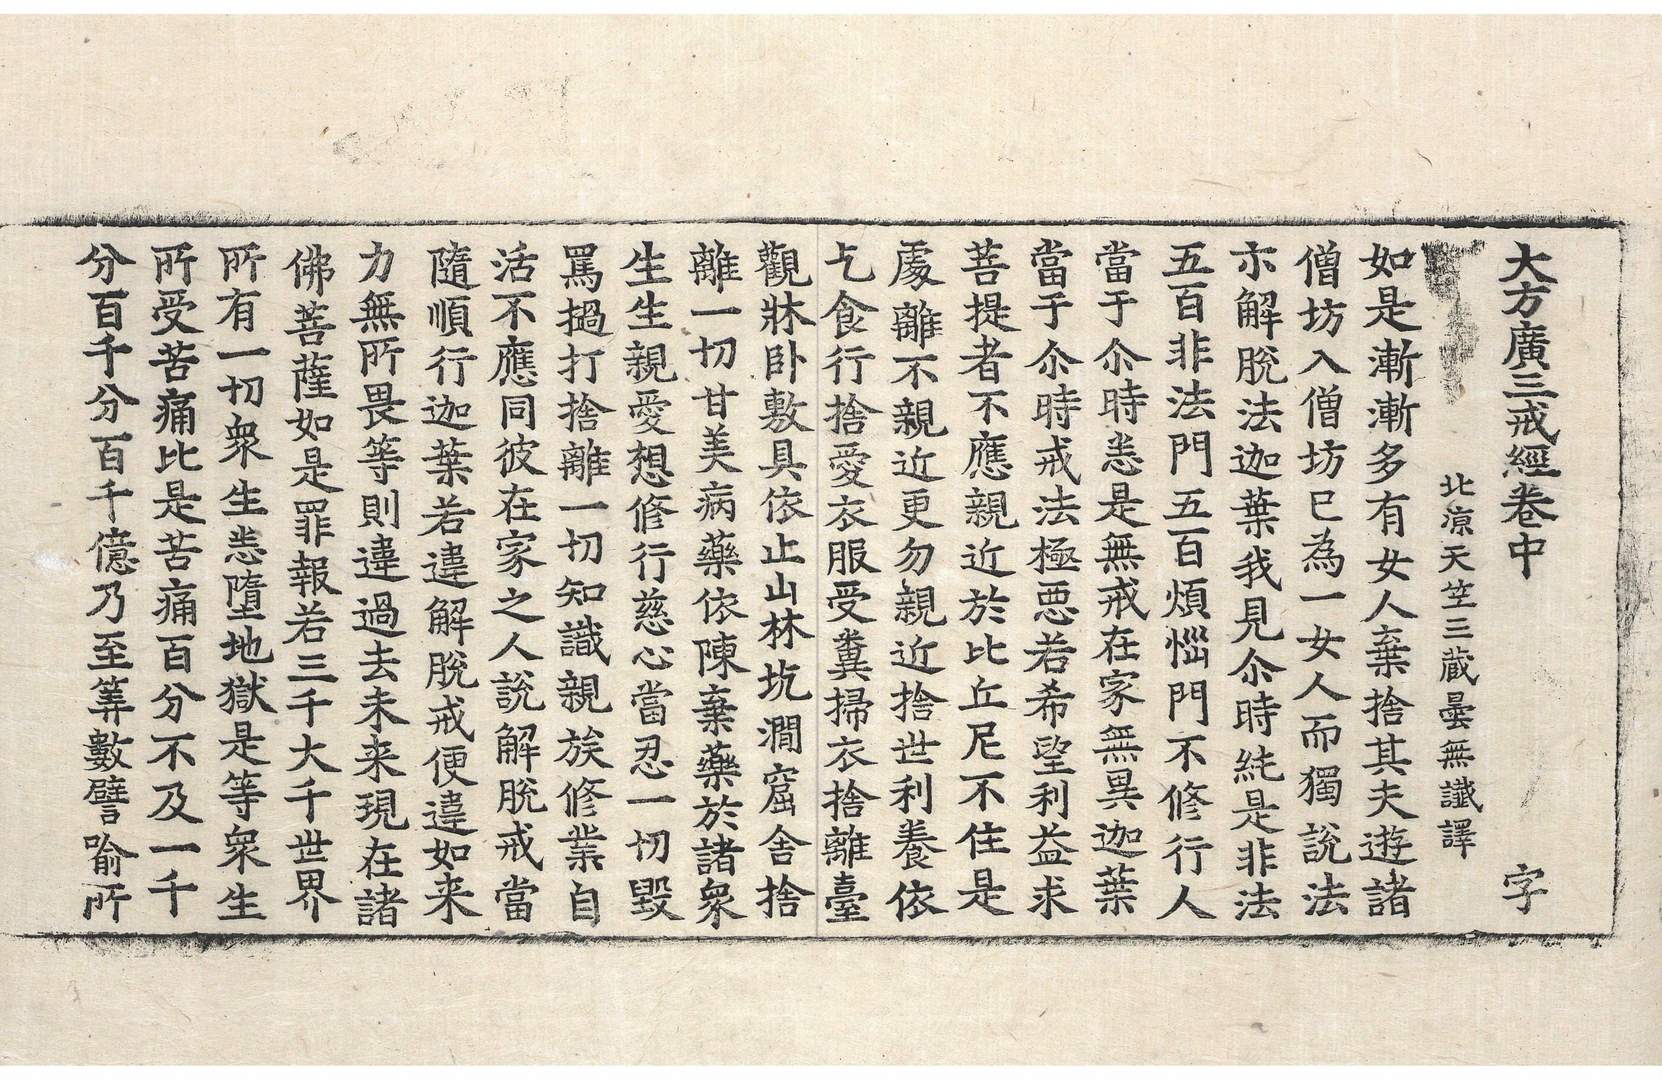 大方廣三戒經卷中 字
北涼天竺三藏曇無讖譯
如是漸漸多有女人棄捨其夫遊諸
僧坊入僧坊已為一女人而獨說法
亦解脫法迦葉我見尒時純是非法
五百非法門五百煩惱門不修行人
當于尒時悉是無戒在家無異迦葉
當于尒時戒法極惡若希望利益求
菩提者不應親近於比丘尼不住是
處離不親近更勿親近捨世利養依
乞食行捨愛衣服受糞掃衣捨離臺
觀牀卧敷具依止山林坑澗窟舍捨
離一切甘美病藥依陳棄藥於諸衆
生生親愛想修行慈心當忍一切毀
罵撾打捨離一切知識親族修業自
活不應同彼在家之人說解脫戒當
隨順行迦葉若違解脫戒便違如来
力無所畏等則違過去未来現在諸
佛菩薩如是罪報若三千大千世界
所有一切衆生悉墮地獄是等衆生
所受苦痛比是苦痛百分不及一千
分百千分百千億乃至筭數譬喻所